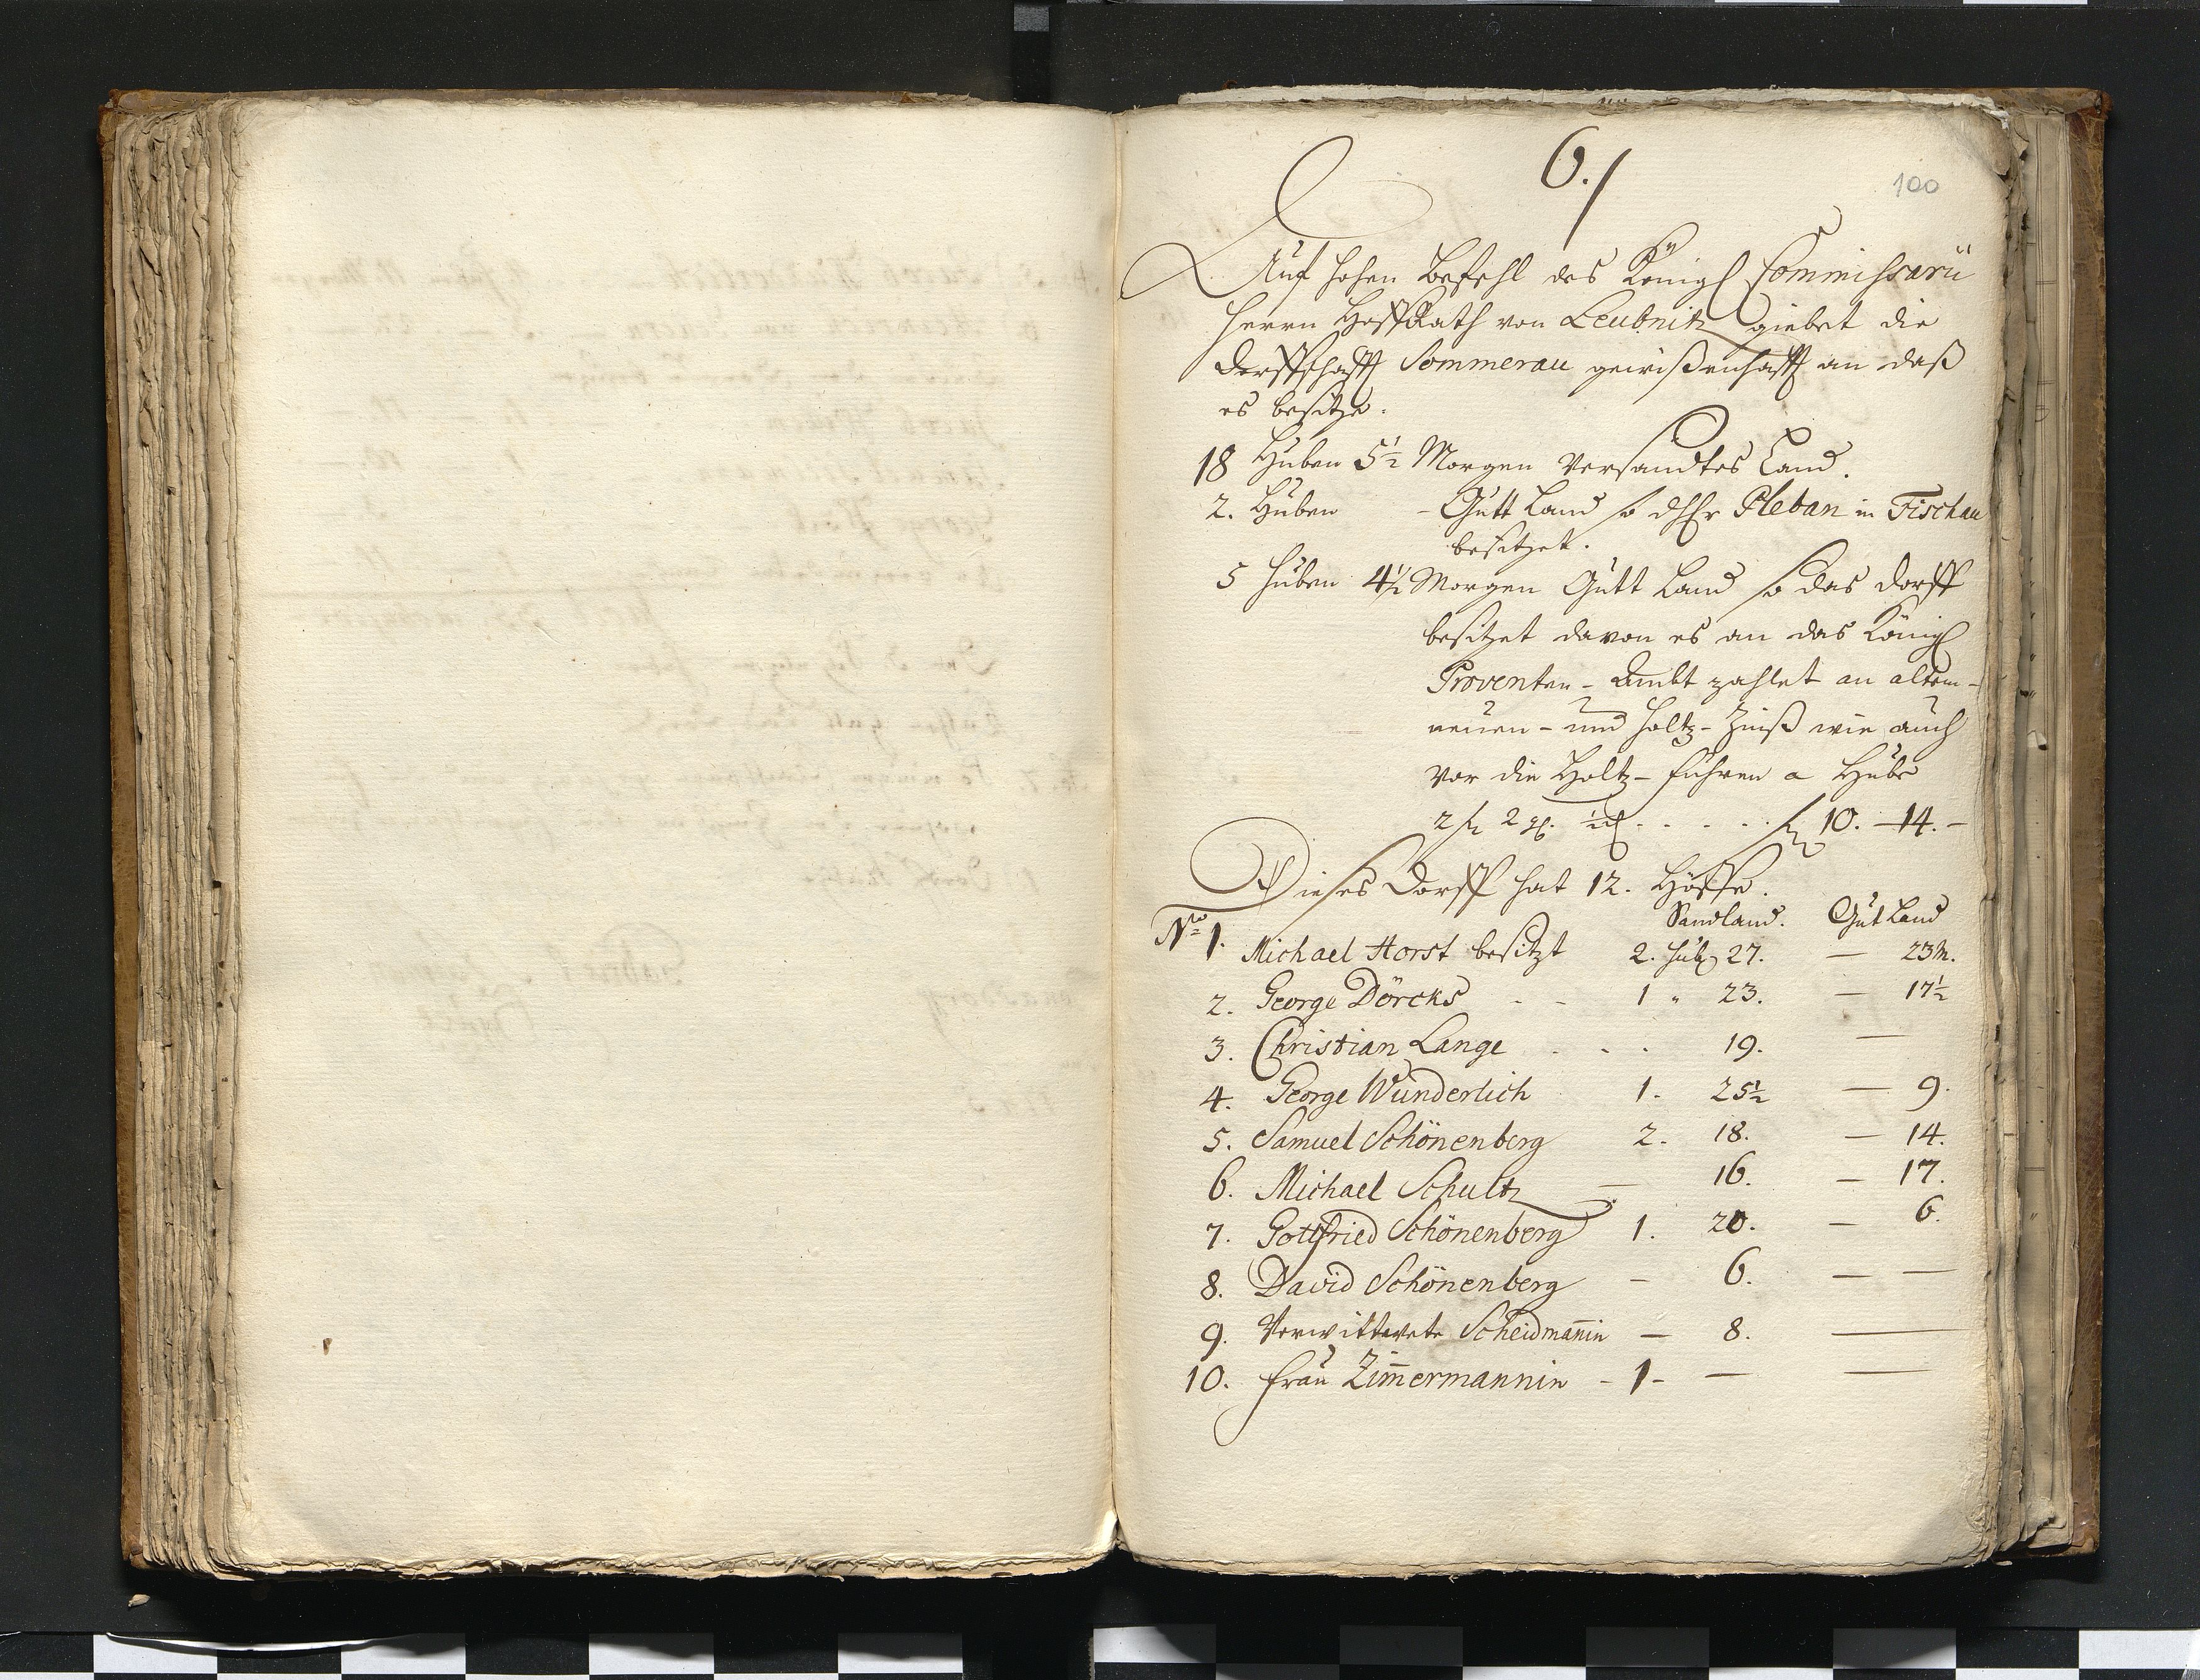 6./
100
Auf hohen Befehl des Königl Commihsarii
Herrn HoffRath von Leubnitz giebet die
Dorffschafft Sommerau gewißenhafft an daß
es besitze.
18 Huben 5½ Morgen Versandtes Land.
2. Huben - Gutt Land so dHEr Pleban in Fischau
besitzet.
5 Huben 4½ Morgen Gutt Land so das Dorff
besitzet davon es an das Königl
Proventen-Ambt zahlet an altem-
neuen- und Holtz-Zinß wie auch
vor die Holtz-Fuhren a Hube
2 2 ½ . . . . . 10. - 14. -
Dieses Dorff hat 12. Höffe.
Sandland. Gut Land
No 1. Michael Horst besitzt 2. Hub 27. — 23 M.
2. George Dörcks - - 1 " 23. — 17½
3. Christian Lange . . . 19. —
4. George Wunderlich 1. 25½ — 9.
5. Samuel Schönenberg 2. 18. — 14.
6. Michael Schultz — 16. — 17.
7. Gottfried Schönenberg 1. 20. — 6.
8. David Schönenberg — 6. — —
9. Verwittwete Scheidmañin — 8. —
10. Frau Zim̃ermannin - 1 - — —